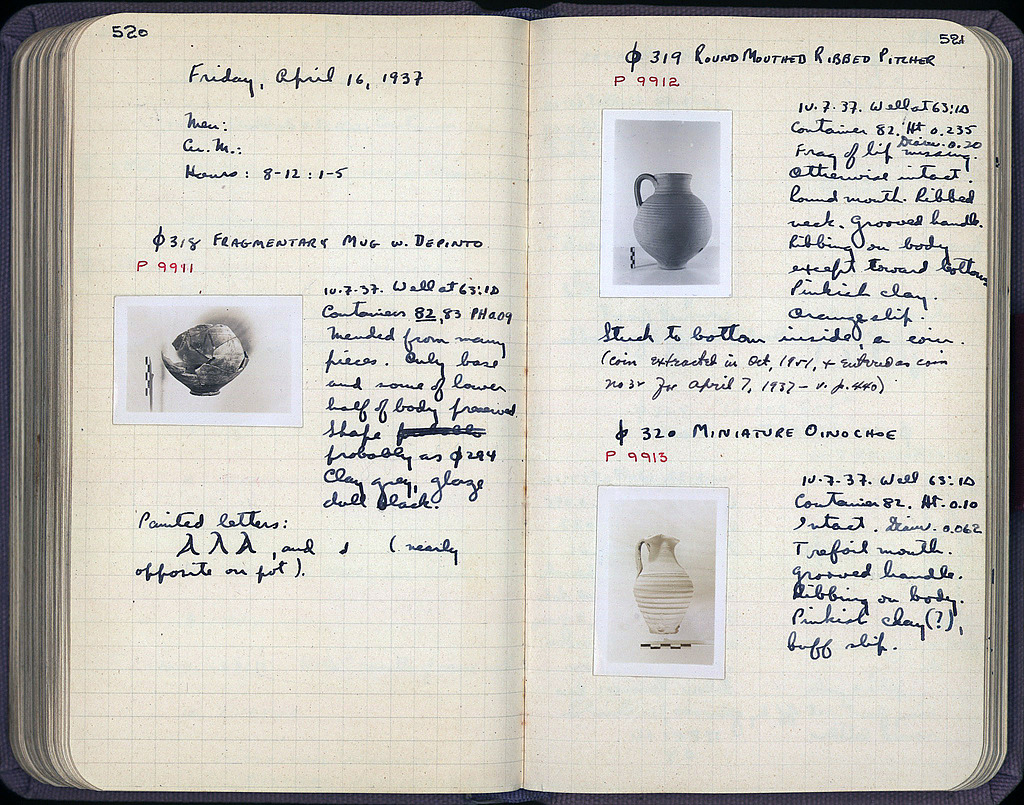 520
Friday, April 16, 1937
Men:
Cu. M.:
Hours: 8-12 : 1-5
φ318 FRAGMENTARY MUG W. DEPINTO
P 9911
IV.7.37. Well at 63:ΙΔ
Containers 82, 83 PHa09
Mended from many
pieces. Only base
and some of lower
half of body preserved.
Shape
probably as φ294
Clay grey, glaze
dull black.
Painted letters:
λ λ λ, and (nearly
opposite on pot).
521
φ 319 ROUND MOUTHED RIBBED PITCHER
P 9912
IV.7.37. Well at 63:ΙΔ
Container 82. Ht 0.235
Diam. 0.20
Frag of lip missing.
Otherwise intact.
Round mouth. Ribbed
neck. Grooved handle.
Ribbing on body
except toward bottom.
Pinkish clay.
Orange slip.
Stuck to bottom inside, a coin.
(coin extracted in Oct, 1951, + entered as coin
no 32 for April 7, 1937 – v. p. 440)
φ 320 MINIATURE OINOCHOE
P 9913
IV.7.37. Well 63:ΙΔ
Container 82. Ht. 0.10
Intact. Diam. 0.062
Trefoil mouth.
Grooved handle.
Ribbing on body.
Pinkish clay(?),
buff slip.